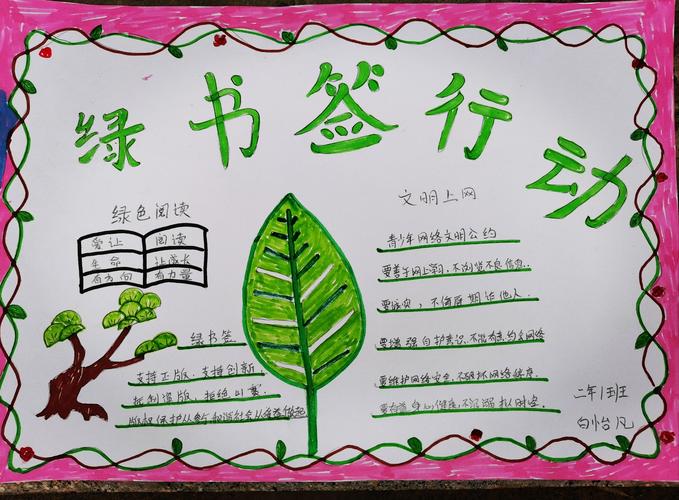 绿书签行动
绿色阅读
爱让 阅读
生命 让成长
有方向 有力量
绿书签
支持正版、支持创新
抵制盗版、拒绝
版权保护从 和谐社会从 做起
文明上网
青少年网络文明公约
要善于网上 不浏览不良信息
要诚 不侮辱期诈他人
要增强自护意识 不 网
要维护网络安全,不破坏网络秩序
要有益身心健康,不沉溺 拟时空
二年1班
白怡凡